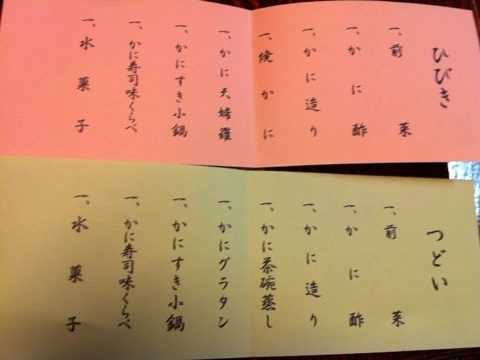 ひびき
一、前菜
一、かに酢
一、かに造り
一、焼かに
一、かに天婦羅
一、かにすき小鍋
一、かに寿司味くらべ
一、水菓子
つどい
一、前菜
一、かに酢
一、かに造り
一、かに茶碗蒸し
一、かにグラタン
一、かにすき小鍋
一、かに寿司味くらべ
一、水菓子